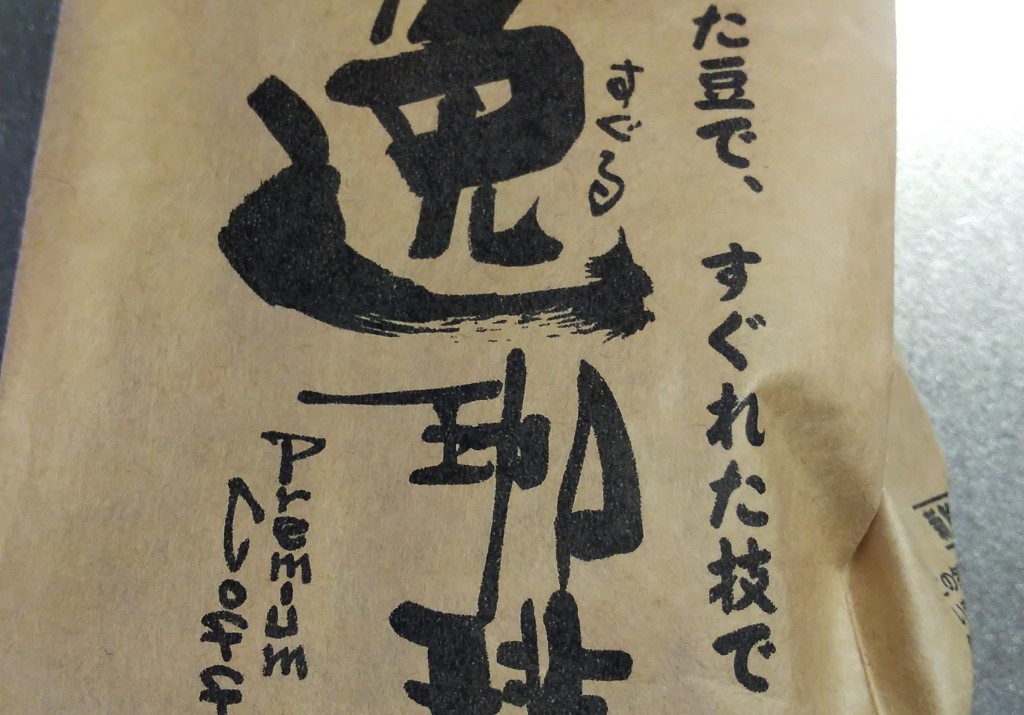 た豆で、すぐれた技で
すぐる
逸珈琲
Premium
Coffee